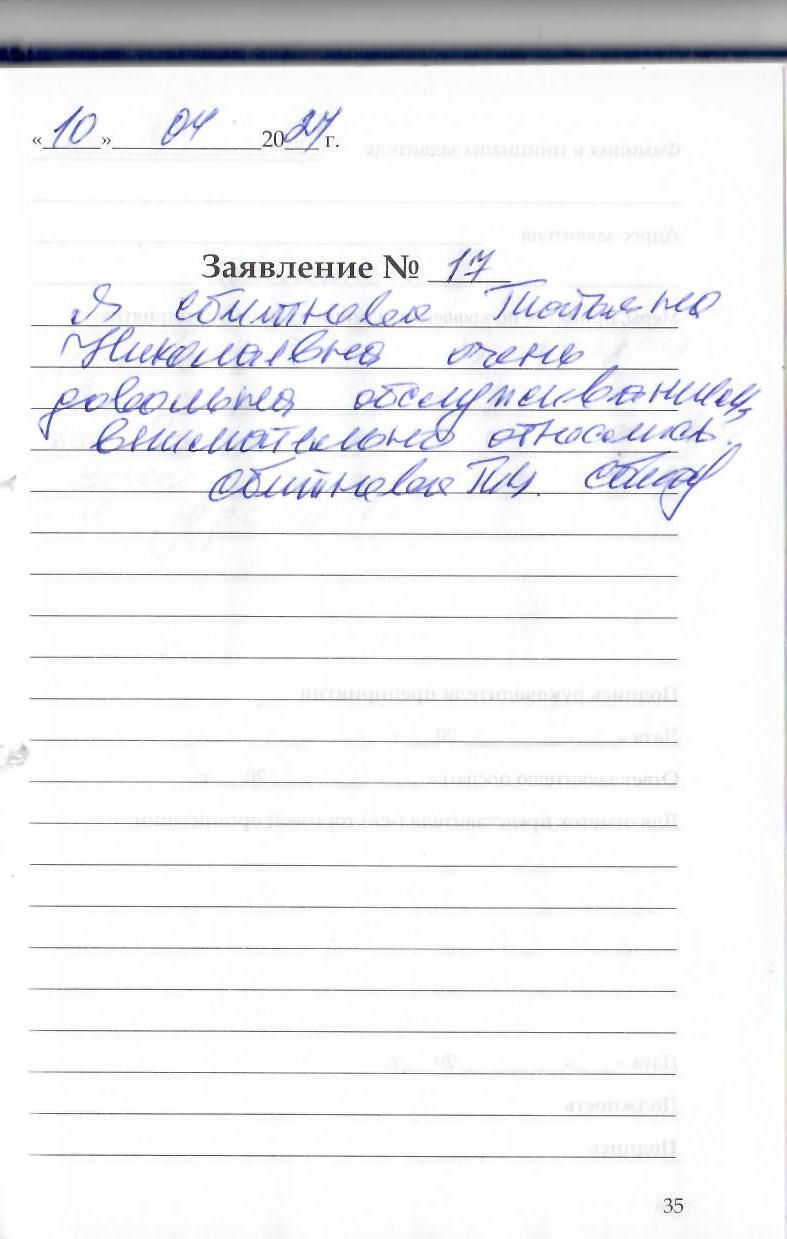 «10» 04 2024 г.
Заявление № 17
Я Сбитнева Татьяна
Николаевна очень
довольна обслуживанием,
внимательно относились.
Сбитнева Т.Н.
35